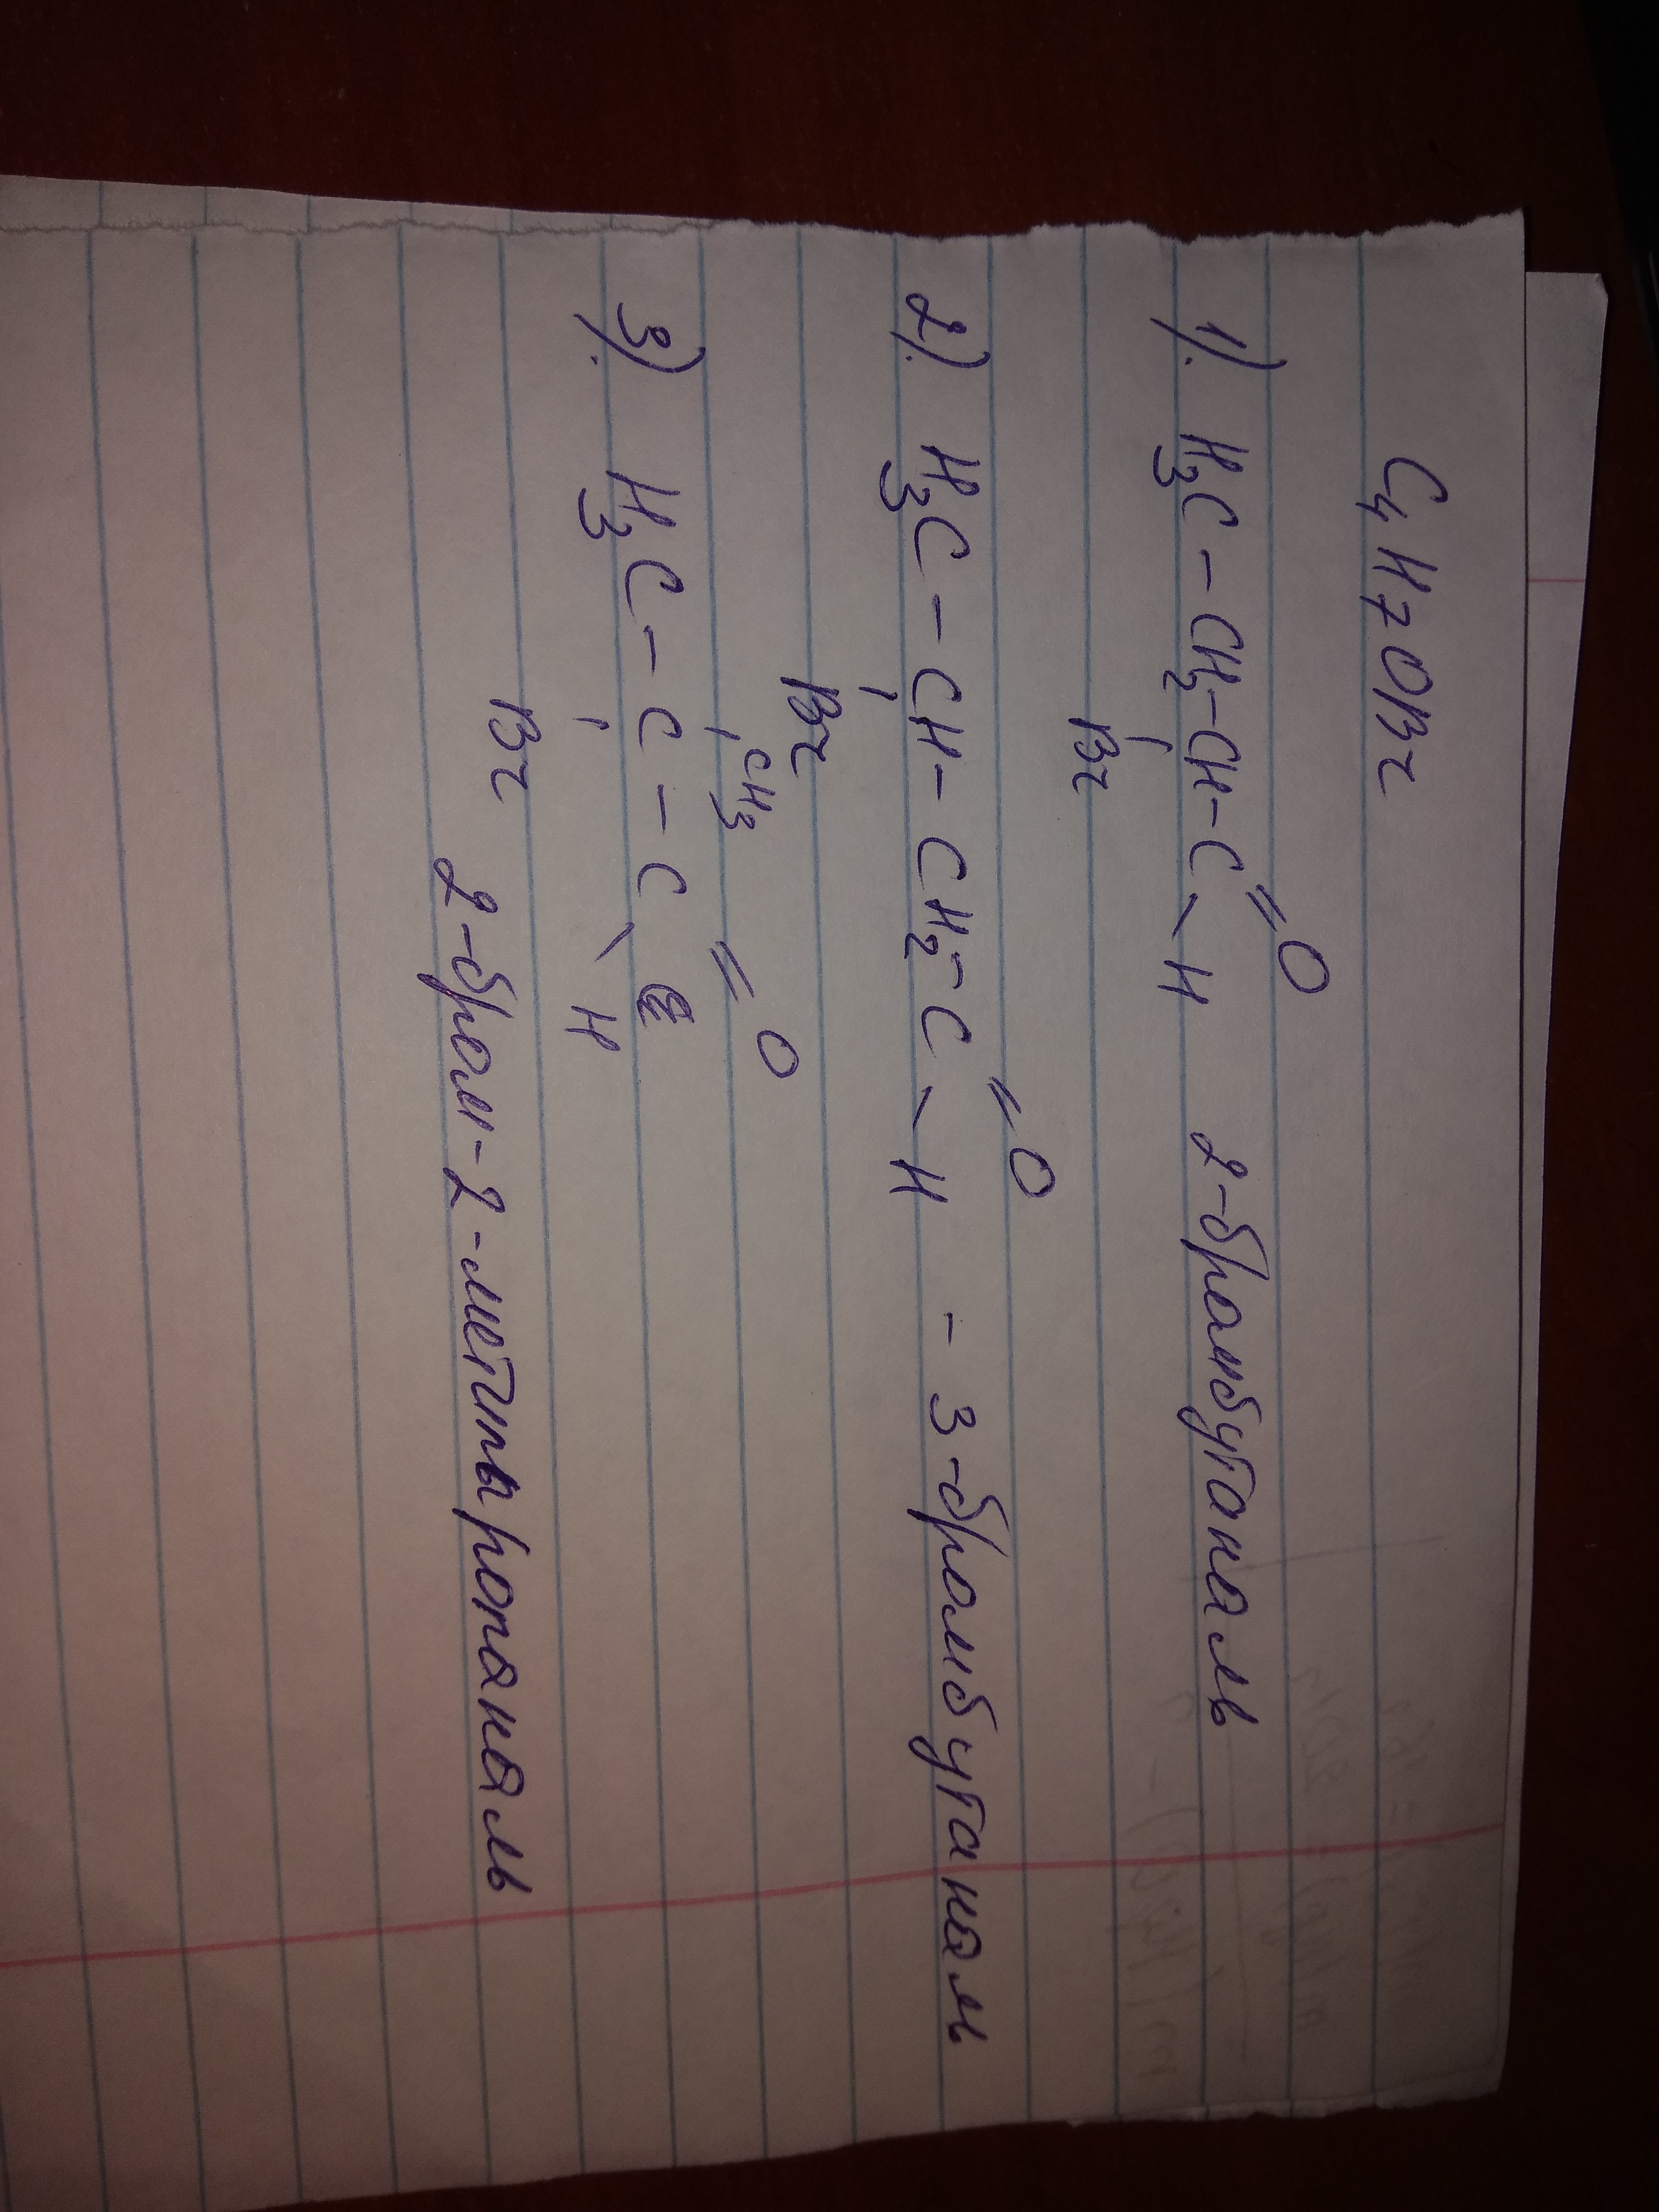 C4H7OBr
O
1). H3C-CH2-CH-C=
\H 2-бромбутаналь
Br
O
2). H3C-CH-CH2-C=
\H - 3-бромбутаналь
Br
CH3 O
3). H3C-C-C=
\H
Br
2-бром-2-метилпропаналь